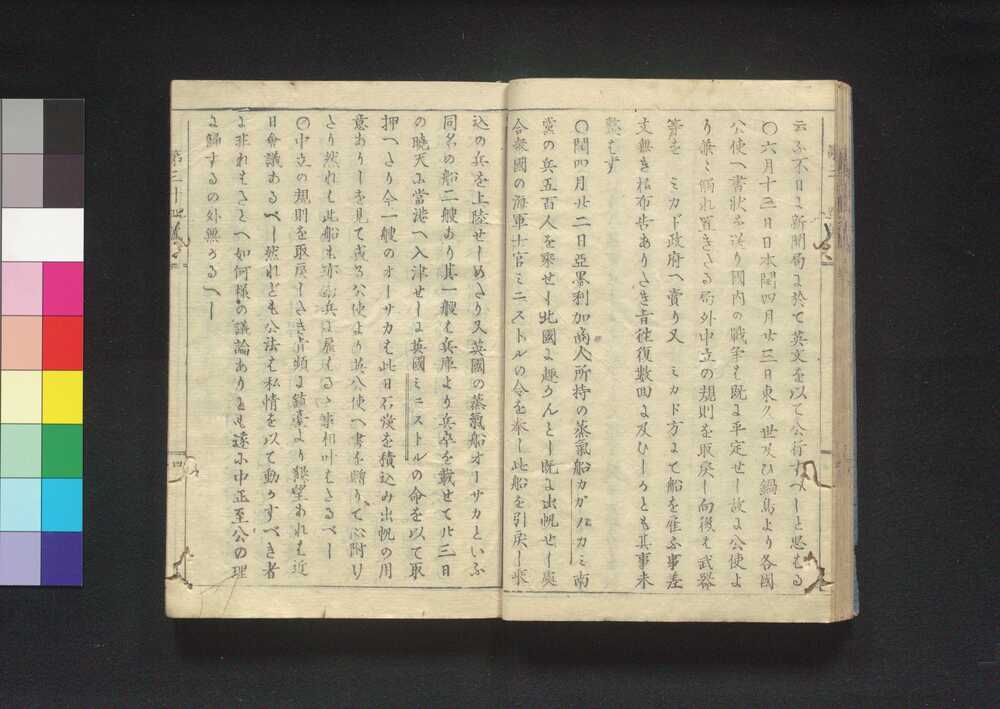 云ふ不日に新聞局に於て英文を以て公行すべしと思はる
〇六月十三日日本閏四月廿三日東久世及ひ鍋島より各國
公使へ書状を送り國内の戦争も既に平定せし故に公使よ
り兼て觸れ置きたる局外中立の規則を取戻し向後も武器
等をミカド政府へ賣り又ミカド方にて船を雇ふ事差
支無き様布告ありたき旨往復數回に及ひしかとも其事未
整はず
〇閏四月廿二日亞墨利加商人所持の蒸氣船カガノカミ南
黨の兵五百人を乗せ北國に趣かんとし既に出帆せし處
合衆國の海軍士官ミニストルの令を奉し此船を引戻し乗
込の兵を上陸せしめたり又英國の蒸氣船オーサカといふ
同名の船二艘あり其一艘は兵庫より兵卒を載せて廿三日
の暁天に當港へ入津せしに英國ミニストルの命を以て取
押へたり今一艘のオーサカも此日石炭を積込み出帆の用
意ありしを見て或る公使より英公使へ書を贈りて心附け
たり然れは此船も
〇中立の規則を取戻したき旨頻に鎮臺より懇望あれは近
日會議あるべし然れども公法は私情を以て動かすべき者
に非れはたとへ如何様の議論ありとも遂に中正至公の理
に歸するの外無かるべし
第三十四
四